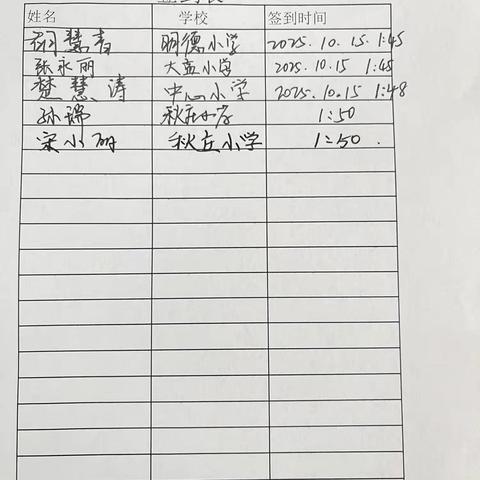 姓名 学校 签到时间
慧春 明德小学 2025.10.15.1:45
张永丽 大孟小学 2025.10.15 1:45
楚慧涛 中心小学 2025.10.15 1:48
孙瑞 秋庄小学 1:50
宋小丽 秋丘小学 1:50.